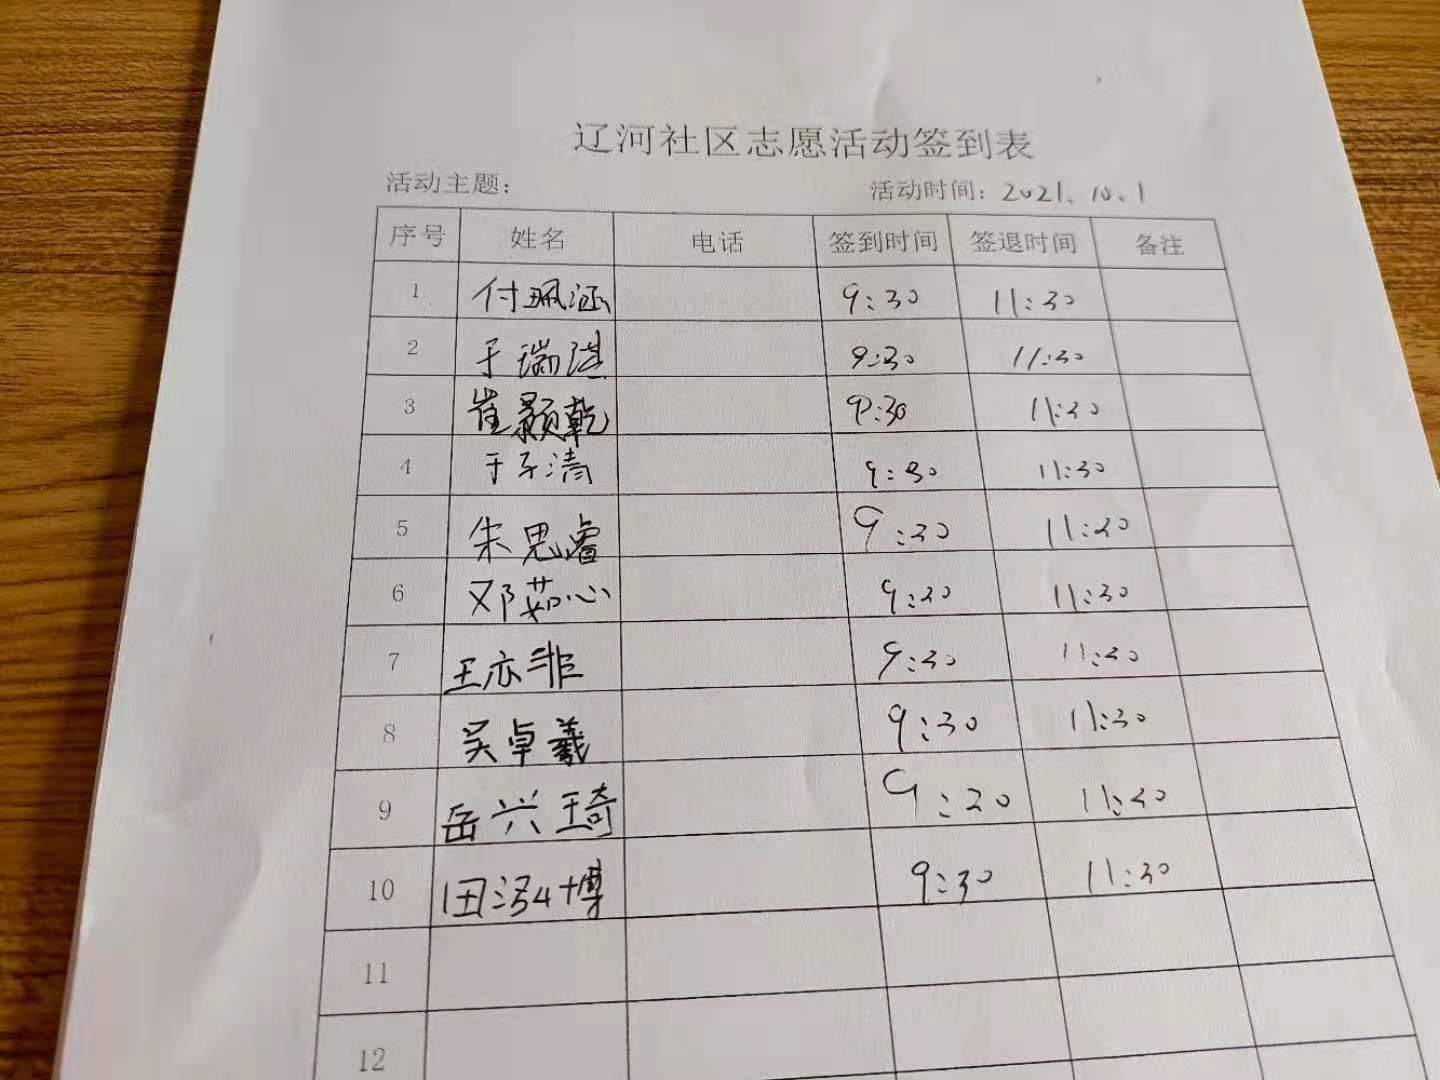 辽河社区志愿活动签到表
活动主题： 活动时间：2021.10.1
序号 姓名 电话 签到时间 签退时间 备注
1 付珮涵 9:30 11:30
2 于瑞 9:30 11:30
3 崔颢乾 9:30 11:30
4 于子清 9:30 11:30
5 朱思睿 9:30 11:30
6 邓茹心 9:30 11:30
7 王亦非 9:30 11:30
8 吴卓羲 9:30 11:30
9 岳兴琦 9:30 11:30
10 田泓博 9:30 11:30
11
12